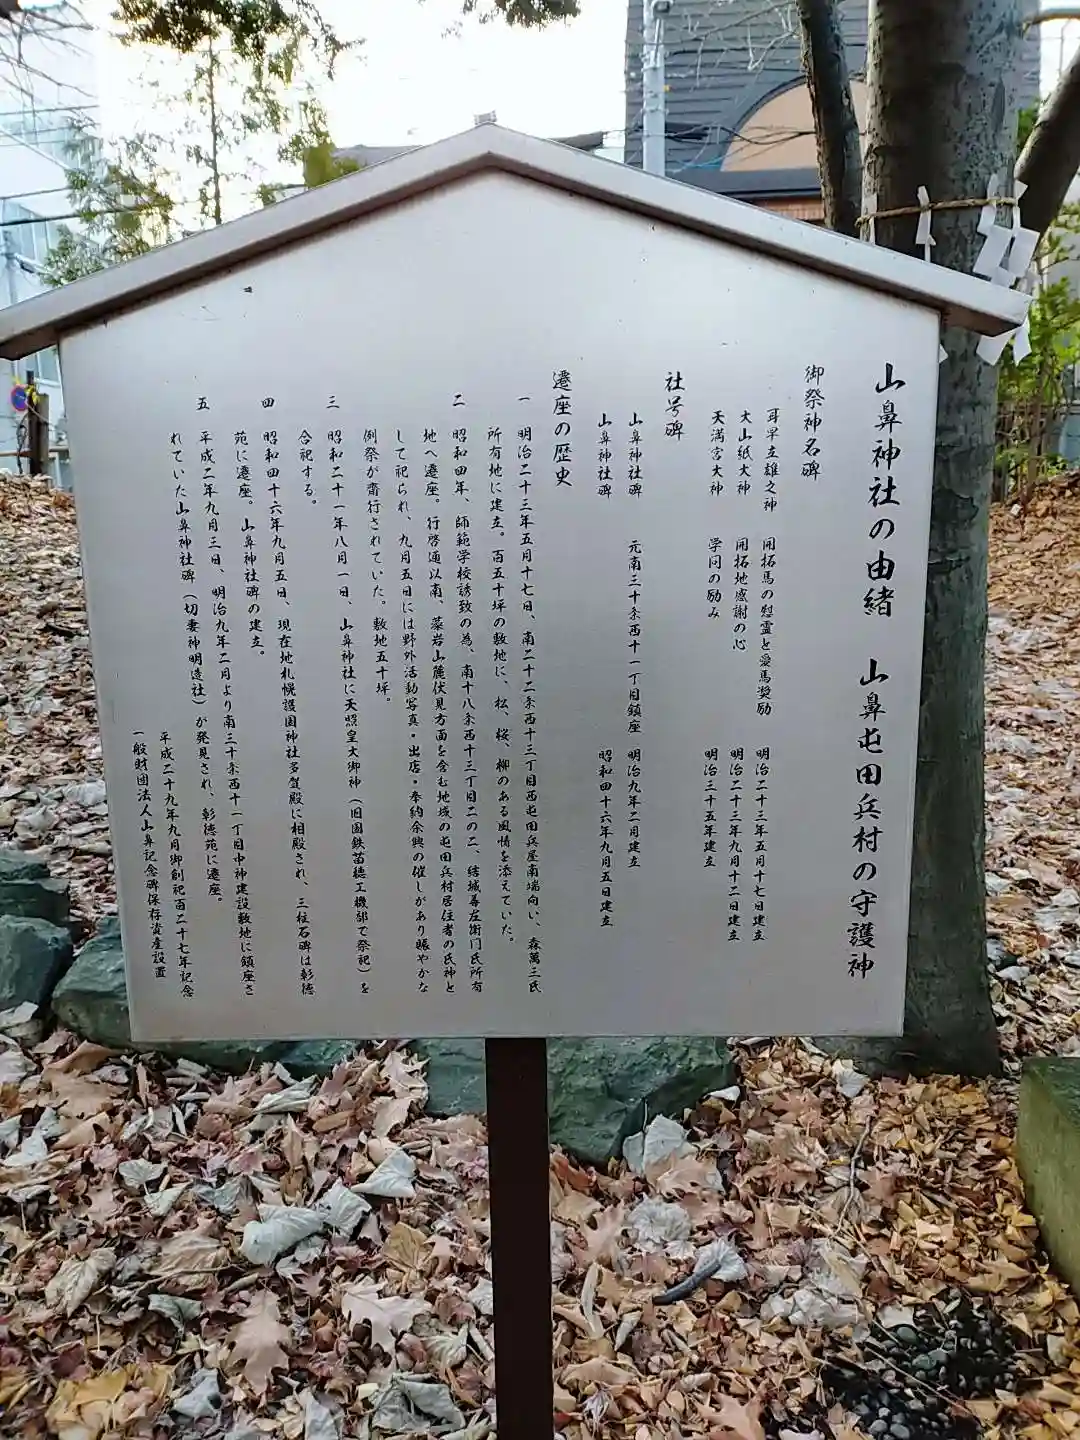 山鼻神社の由緒 山鼻屯田兵村の守護神
御祭神名碑
耳早立雄之神 開拓馬の慰霊と愛馬奨励 明治二十三年五月十七日建立
大山紙大神 開拓地感謝の心 明治二十三年九月十二日建立
天満宮大神 学問の励み 明治三十五年建立
社号碑
山鼻神社碑 元南三十条西十一丁目鎮座 明治九年二月建立
山鼻神社碑 昭和四十六年九月五日建立
遷座の歴史
一 明治二十三年五月十七日、南二十二条西十三丁目西屯田兵屋南端向い、森萬三氏
所有地に建立。百五十坪の敷地に、松、桜、柳のある風情を添えていた。
二 昭和四年、師範学校誘致の為、南十八条西十三丁目二の二、結城善左衛門氏所有
地へ遷座。行啓通以南、藻岩山麓伏見方面を含む地域の屯田兵村居住者の氏神と
して祀られ、九月五日には野外活動写真・出店・奉納余興の催しがあり賑やかな
例祭が齋行されていた。敷地五十坪。
三 昭和二十一年八月一日、山鼻神社に天照皇大御神（旧国鉄苗穂工機部で祭祀）を
合祀する。
四 昭和四十六年九月五日、現在地札幌護国神社多賀殿に相殿され、三柱石碑は彰徳
苑に遷座。山鼻神社碑の建立。
五 平成二年九月三日、明治九年二月より南三十条西十一丁目中神建設敷地に鎮座さ
れていた山鼻神社碑（切妻神明造社）が発見され、彰徳苑に遷座。
平成二十九年九月御創祀百二十七年記念
一般財団法人山鼻記念碑保存資産設置